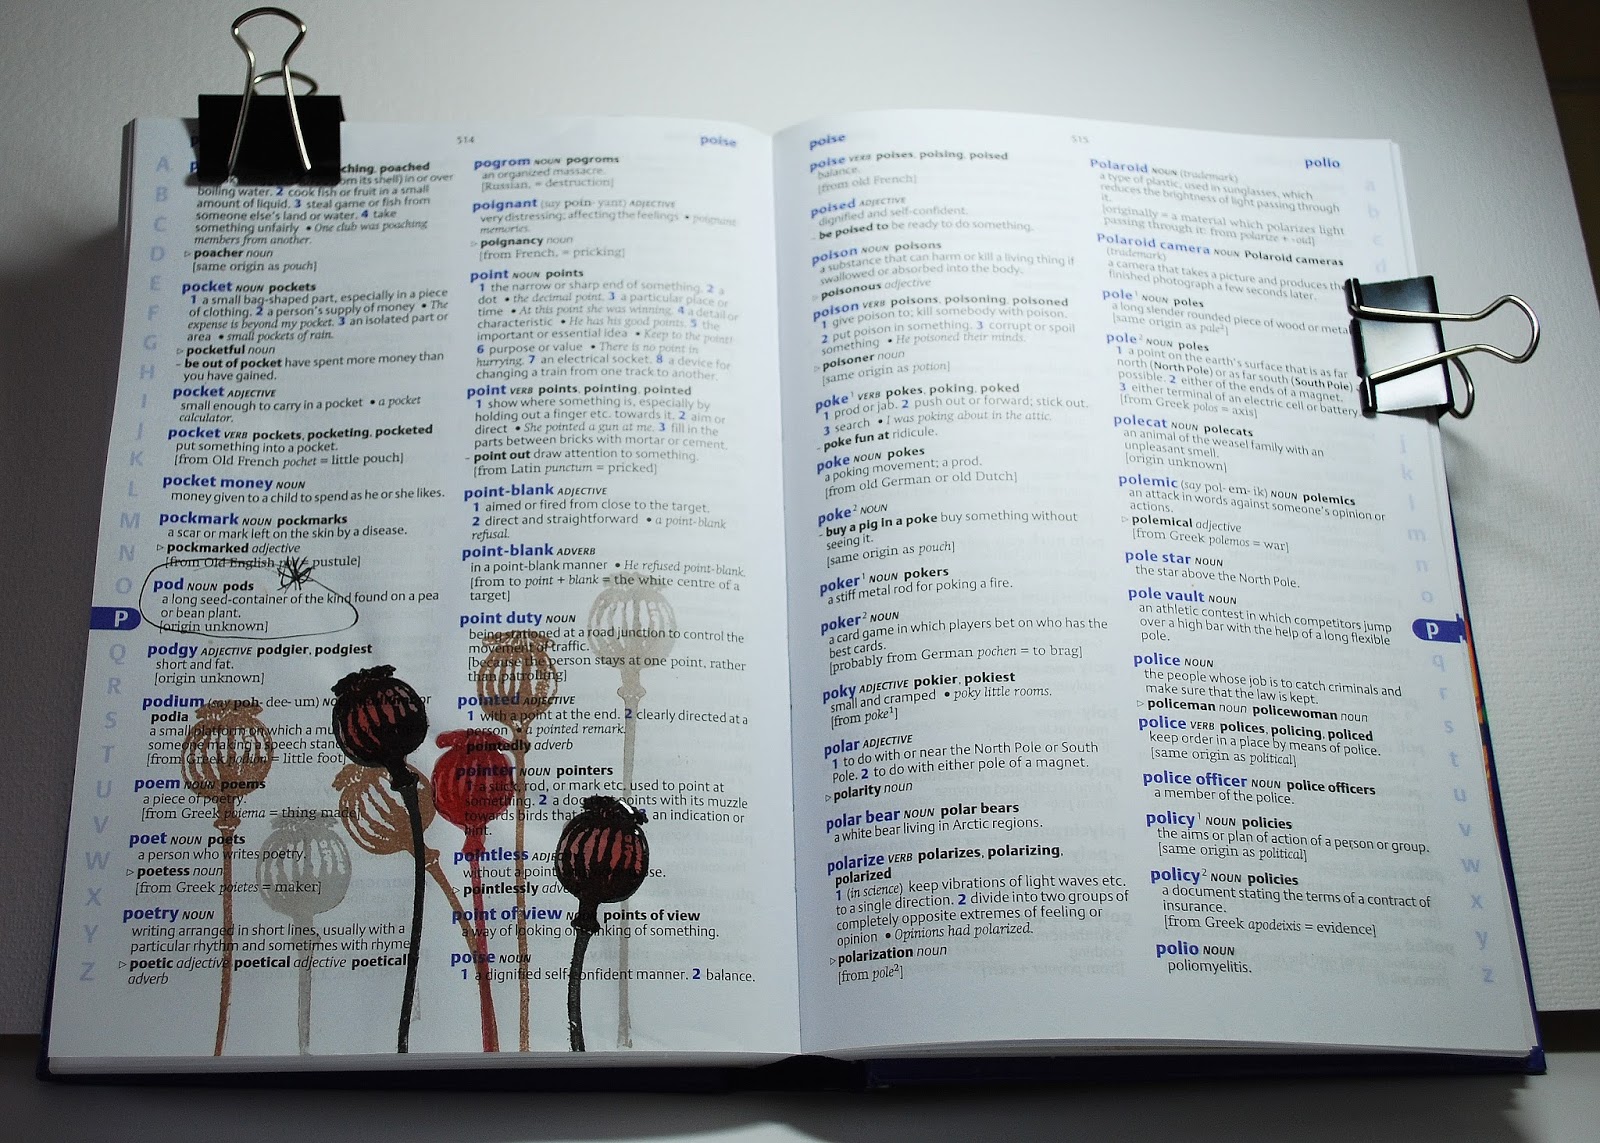 514
poise
ching, poached
from its shell) in or over
boiling water. 2 cook fish or fruit in a small
amount of liquid. 3 steal game or fish from
someone else's land or water. 4 take
something unfairly • One club was poaching
members from another.
▷ poacher noun
[same origin as pouch]
pocket NOUN pockets
1 a small bag-shaped part, especially in a piece
of clothing. 2 a person's supply of money • The
expense is beyond my pocket. 3 an isolated part or
area • small pockets of rain.
▷ pocketful noun
- be out of pocket have spent more money than
you have gained.
pocket ADJECTIVE
small enough to carry in a pocket • a pocket
calculator.
pocket VERB pockets, pocketing, pocketed
put something into a pocket.
[from Old French pochet = little pouch]
pocket money NOUN
money given to a child to spend as he or she likes.
pockmark NOUN pockmarks
a scar or mark left on the skin by a disease.
▷ pockmarked adjective
[from Old English = pustule]
pod NOUN pods
a long seed-container of the kind found on a pea
or bean plant.
[origin unknown]
podgy ADJECTIVE podgier, podgiest
short and fat.
[origin unknown]
podium (say poh-dee-um) or
podia
a small platform on which a mu
someone making a speech stand
[from Greek podion = little foot]
poem NOUN poems
a piece of poetry.
[from Greek poiema = thing made]
poet NOUN poets
a person who writes poetry.
▷ poetess noun
[from Greek poietes = maker]
poetry NOUN
writing arranged in short lines, usually with a
particular rhythm and sometimes with rhyme
▷ poetic adjective poetical adjective poetically
adverb
A
B
C
D
E
F
G
H
I
J
K
L
M
N
O
P
Q
R
S
T
U
V
W
X
Y
Z
pogrom NOUN pogroms
an organized massacre.
[Russian, = destruction]
poignant (say poin-yant) ADJECTIVE
very distressing; affecting the feelings • poignant
memories.
▷ poignancy noun
[from French, = pricking]
point NOUN points
1 the narrow or sharp end of something. 2 a
dot • the decimal point. 3 a particular place or
time • At this point she was winning. 4 a detail or
characteristic • He has his good points. 5 the
important or essential idea • Keep to the point!
6 purpose or value • There is no point in
hurrying. 7 an electrical socket. 8 a device for
changing a train from one track to another.
point VERB points, pointing, pointed
1 show where something is, especially by
holding out a finger etc. towards it. 2 aim or
direct • She pointed a gun at me. 3 fill in the
parts between bricks with mortar or cement.
- point out draw attention to something.
[from Latin punctum = pricked]
point-blank ADJECTIVE
1 aimed or fired from close to the target.
2 direct and straightforward • a point-blank
refusal.
point-blank ADVERB
in a point-blank manner • He refused point-blank.
[from to point + blank = the white centre of a
target]
point duty NOUN
being stationed at a road junction to control the
movement of traffic.
[because the person stays at one point, rather
than patrolling]
pointed ADJECTIVE
1 with a point at the end. 2 clearly directed at a
person • a pointed remark.
▷ pointedly adverb
pointer NOUN pointers
1 a stick, rod, or mark etc. used to point at
something. 2 a dog that points with its muzzle
towards birds that an indication or
hint.
pointless ADJECTIVE
without a point
▷ pointlessly adverb
point of view NOUN points of view
a way of looking or thinking of something.
poise NOUN
1 a dignified self-confident manner. 2 balance.
poise
515
polio
poise VERB poises, poising, poised
balance.
[from old French]
poised ADJECTIVE
dignified and self-confident.
- be poised to be ready to do something.
poison NOUN poisons
a substance that can harm or kill a living thing if
swallowed or absorbed into the body.
▷ poisonous adjective
poison VERB poisons, poisoning, poisoned
1 give poison to; kill somebody with poison.
2 put poison in something. 3 corrupt or spoil
something • He poisoned their minds.
▷ poisoner noun
[same origin as potion]
poke¹ VERB pokes, poking, poked
1 prod or jab. 2 push out or forward; stick out.
3 search • I was poking about in the attic.
- poke fun at ridicule.
poke NOUN pokes
a poking movement; a prod.
[from old German or old Dutch]
poke² NOUN
- buy a pig in a poke buy something without
seeing it.
[same origin as pouch]
poker¹ NOUN pokers
a stiff metal rod for poking a fire.
poker² NOUN
a card game in which players bet on who has the
best cards.
[probably from German pochen = to brag]
poky ADJECTIVE pokier, pokiest
small and cramped • poky little rooms.
[from poke¹]
polar ADJECTIVE
1 to do with or near the North Pole or South
Pole. 2 to do with either pole of a magnet.
▷ polarity noun
polar bear NOUN polar bears
a white bear living in Arctic regions.
polarize VERB polarizes, polarizing,
polarized
1 (in science) keep vibrations of light waves etc.
to a single direction. 2 divide into two groups of
completely opposite extremes of feeling or
opinion • Opinions had polarized.
▷ polarization noun
[from pole²]
Polaroid NOUN (trademark)
a type of plastic, used in sunglasses, which
reduces the brightness of light passing through
it.
[originally = a material which polarizes light
passing through it: from polarize + -oid]
Polaroid camera NOUN Polaroid cameras
(trademark)
a camera that takes a picture and produces the
finished photograph a few seconds later.
pole¹ NOUN poles
a long slender rounded piece of wood or metal
[same origin as pale²]
pole² NOUN poles
1 a point on the earth's surface that is as far
north (North Pole) or as far south (South Pole)
possible. 2 either of the ends of a magnet.
3 either terminal of an electric cell or battery.
[from Greek polos = axis]
polecat NOUN polecats
an animal of the weasel family with an
unpleasant smell.
[origin unknown]
polemic (say pol-em-ik) NOUN polemics
an attack in words against someone's opinion or
actions.
▷ polemical adjective
[from Greek polemos = war]
pole star NOUN
the star above the North Pole.
pole vault NOUN
an athletic contest in which competitors jump
over a high bar with the help of a long flexible
pole.
police NOUN
the people whose job is to catch criminals and
make sure that the law is kept.
▷ policeman noun policewoman noun
police VERB polices, policing, policed
keep order in a place by means of police.
[same origin as political]
police officer NOUN police officers
a member of the police.
policy¹ NOUN policies
the aims or plan of action of a person or group.
[same origin as political]
policy² NOUN policies
a document stating the terms of a contract of
insurance.
[from Greek apodeixis = evidence]
polio NOUN
poliomyelitis.
a
b
c
d
j
k
l
m
n
o
p
q
r
s
t
u
v
w
x
y
z